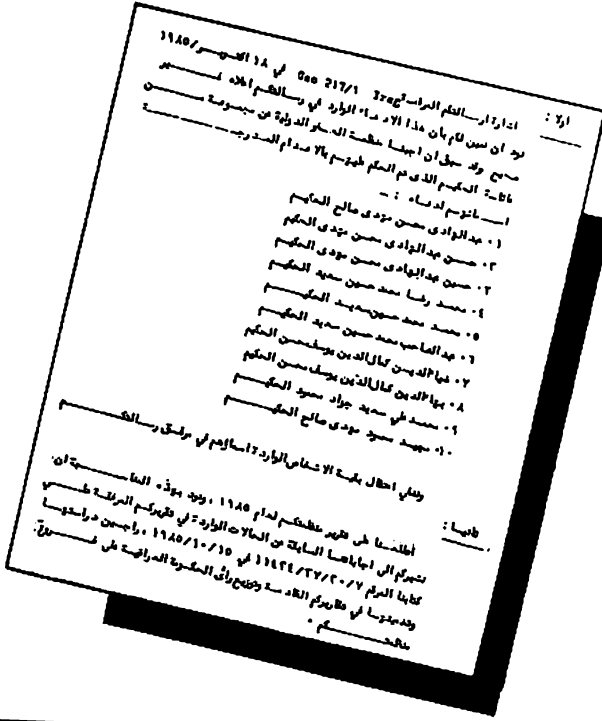 اولا :
اشارة لرسالتكم المرقمة Gao 217/1 Iraq في ١٨ اكتوبر/١٩٨٥
نود ان نبين لكم بأن هذا الادعاء الوارد في رسالتكم اعلاه غير
صحيح وقد سبق ان اجبنا منظمة العفو الدولية عن مجموعة من
عائلة الحكيم الذي تم الحكم عليهم بالاعدام المدرجة
اسمائهم ادناه : -
١٠ عبدالهادي محسن مهدي صالح الحكيم
٢٠ حسن عبدالهادي محسن مهدي الحكيم
٣٠ حسين عبدالهادي محسن مهدي الحكيم
٤٠ محمد رضا محمد حسين سعيد الحكيم
٥٠ محمد محمد حسين سعيد الحكيم
٦٠ عبدالصاحب محمد حسين سعيد الحكيم
٧٠ ضياءالدين كمال الدين يوسف محسن الحكيم
٨٠ بهاءالدين كمال الدين يوسف محسن الحكيم
٩٠ محمد علي سعيد جواد محمود الحكيم
١٠٠ مجيد محمود مهدي صالح الحكيم
وننفي اعتقال بقية الاشخاص الواردة اسماؤهم في مرفق رسالتكم
ثانيا :
أطلعنا على تقرير منظمتكم لعام ١٩٨٥ ، ونود بهذه المناسبة ان
نشيركم الى اجاباتنا السابقة عن الحالات الواردة في تقريركم المرفقة طي
كتابنا المرقم ١١٤٢٤/٢٧/٢٠/٧ في ١٩٨٥/١٠/١٥ ، راجين دراستها
وتدوينها في تقاريركم القادمة وتوزيع رأى الحكومة العراقية على فروع
منظمتكم ٠